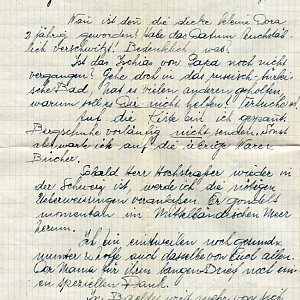 Nun ist denn die dicke kleine Dora
2 jährig geworden! habe das Datum buchstäb-
lich verschwitzt! Bedenklich, was!
Ist das Ischias von Papa noch nicht
vergangen? Gehe doch in das russisch-türki-
sche Bad, hat es vielen anderen geholfen,
warum soll es Dir nicht helfen! Versuche es!
Auf die Kiste bin ich gespannt.
Bergschuhe vorläufig nicht senden, sonst
aber warte ich auf die übrige Ware
Bücher.
Sobald Herr Hochstrasser wieder in
der Schweiz ist, werde ich die nötigen
Ueberweisungen veranlassen. Er gondelt
momentan im Mittelländischen Meer
herum.
Ich bin einstweilen noch gesund,
munter & hoffe auch dasselbe von Euch allen.
Der Mama für ihren langen Brief noch ein-
en speziellen Dank.
In wird mehr von sich